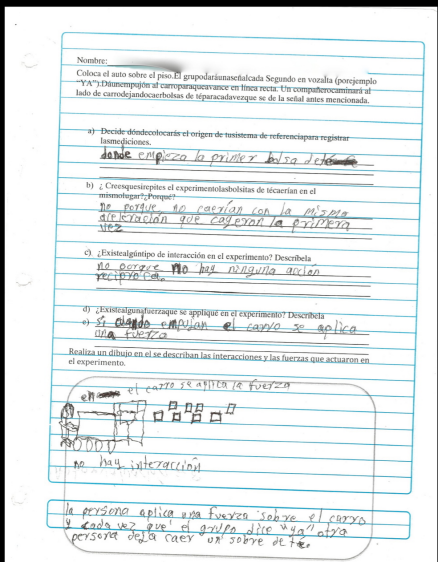 Nombre:
Coloca el auto sobre el piso.El grupodaráunaseñalcada Segundo en vozalta (porejemplo
"YA").Dáunempujón al carroparaqueavance en línea recta. Un compañerocaminará al
lado de carrodejandocaerbolsas de téparacadavezque se de la señal antes mencionada.
a) Decide dóndecolocarás el origen de tusistema de referenciapara registrar
lasmediciones.
donde empieza la primer bolsa de te
b) ¿ Creesquesirepites el experimentolasbolsitas de técaerían en el
mismolugar?¿Porqué?
no porque no caerían con la misma
aceleración que cayeron la primera
vez
c) ¿Existealgúntipo de interacción en el experimento? Descríbela
no porque no hay ninguna acción
reciproca.
d) ¿Existealgunafuerzaque se applique en el experimento? Descríbela
e) Si cuando empujan el carro se aplica
una fuerza
Realiza un dibujo en el se describan las interacciones y las fuerzas que actuaron en
el experimento.
en el carro se aplica la fuerza
no hay interacción
la persona aplica una fuerza sobre el carro
y cada vez que el grupo dice "ya" otra
persona deja caer un sobre de te.